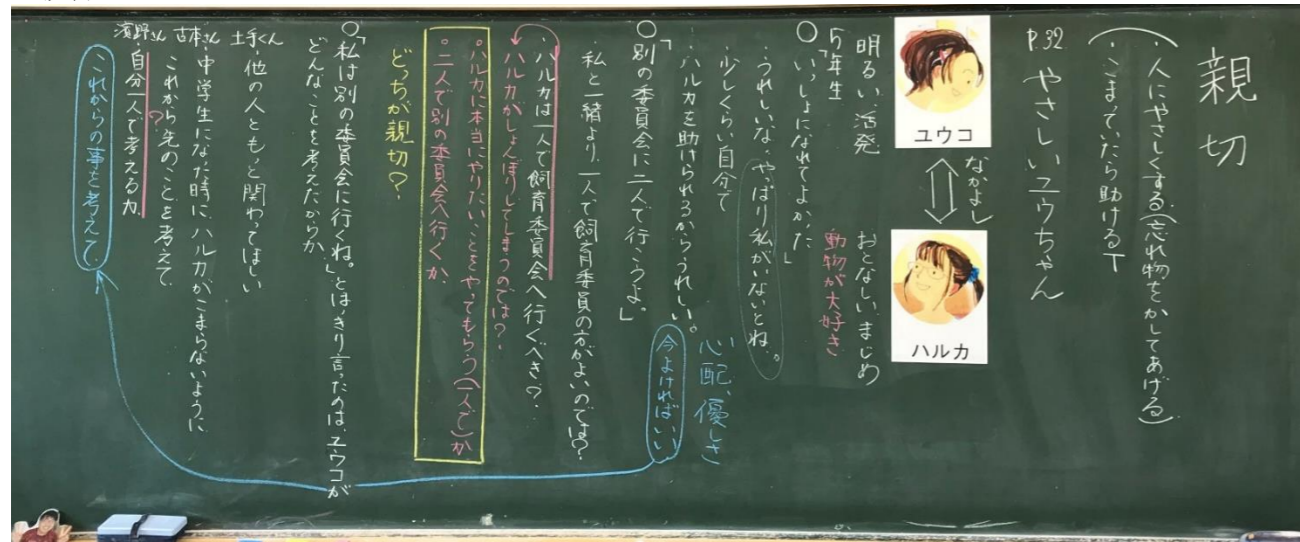 親切
・人にやさしくする(忘れ物をかしてあげる)
・こまっていたら助ける
P.32 やさしいユウちゃん
ユウコ
なかよし
ハルカ
明るい、活発
おとなしい、まじめ
動物が大好き
5年生
○「いっしょになれてよかった」
・うれしいな、やっぱり私がいないとね。
・少しくらい自分で
・ハルカを助けられるからうれしい。
心配、優しさ
今よければいい
○「別の委員会に二人で行こうよ。」
私と一緒より、一人で飼育委員の方がよいのでは?
・ハルカは一人で飼育委員会へ行くべき?
・ハルカがしょんぼりしてしまうのでは?
・ハルカに本当にやりたいことをやってもらう(一人で)か
・二人で別の委員会へ行くか
どっちが親切?
○「私は別の委員会に行くね。」とはっきり言ったのは、ユウコが
どんなことを考えたからか
土手くん・他の人ともっと関わってほしい
古本さん・中学生になった時に、ハルカがこまらないように
これから先のことを考えて
濱野さん・自分一人で考える力
?
これからの事を考えて